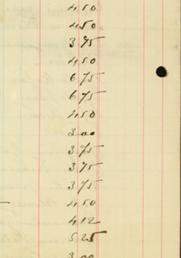 4 50
4 50
3 75
4 50
6 75
6 75
4 50
3 00
3 75
3 75
3 75
4 50
4 12
5 25
3 00